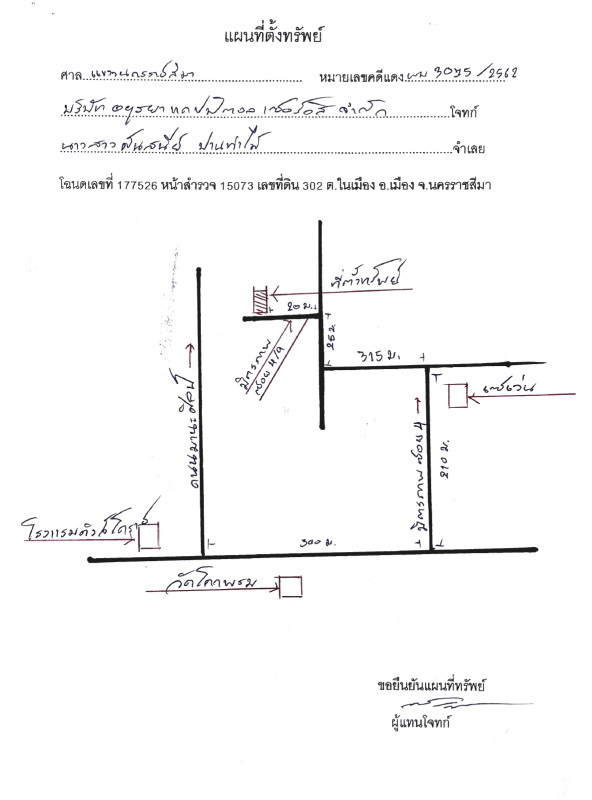 แผนที่ตั้งทรัพย์
ศาล แขวงนครราชสีมา หมายเลขคดีแดง ผบ 3075/2562
บริษัท อยุธยา แคปปิตอล เซอร์วิสเซส จำกัด โจทก์
นางสาว ปานทำไม้ จำเลย
โฉนดเลขที่ 177526 หน้าสำรวจ 15073 เลขที่ดิน 302 ต.ในเมือง อ.เมือง จ.นครราชสีมา
ที่ตั้งทรัพย์
20 ม.
25 ม.
มิตรภาพ ซอย 4/9
315 ม.
เซเว่น
ถนนมานะศิลป์
มิตรภาพ ซอย 4
210 ม.
300 ม.
วัดโคกพรม
ขอยืนยันแผนที่ทรัพย์
ผู้แทนโจทก์